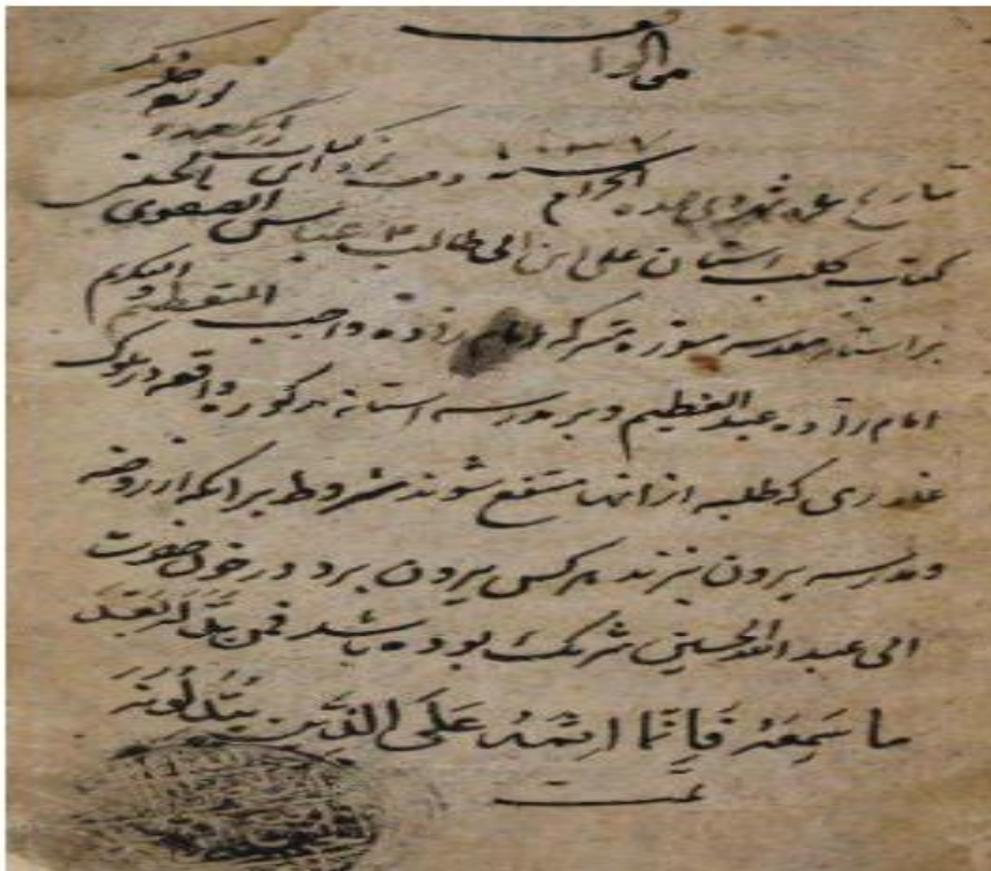 هو الواقف
بتاریخ غره شهر ذی قعده الحرام سنه ۱۰۳۷ وقف نمود این
کتاب کلب آستان علی ابن ابی طالب عباس الصفوی الحسینی
بر آستانه مقدسه منوره متبرکه امام زاده واجب التعظیم والتکریم
امام زاده عبد العظیم و بر مدرسه آستانه مذکوره واقعه در بلوک
غار ری که طلبه از آنها منتفع شوند مشروط بر آنکه از روضه
و مدرسه بیرون نبرند هر کس بیرون برد در خون حضرت
ابی عبد الله الحسین شریک بوده باشد فمن بدله بعد
ما سمعه فانما اثمه علی الذین یبدلونه
تمت